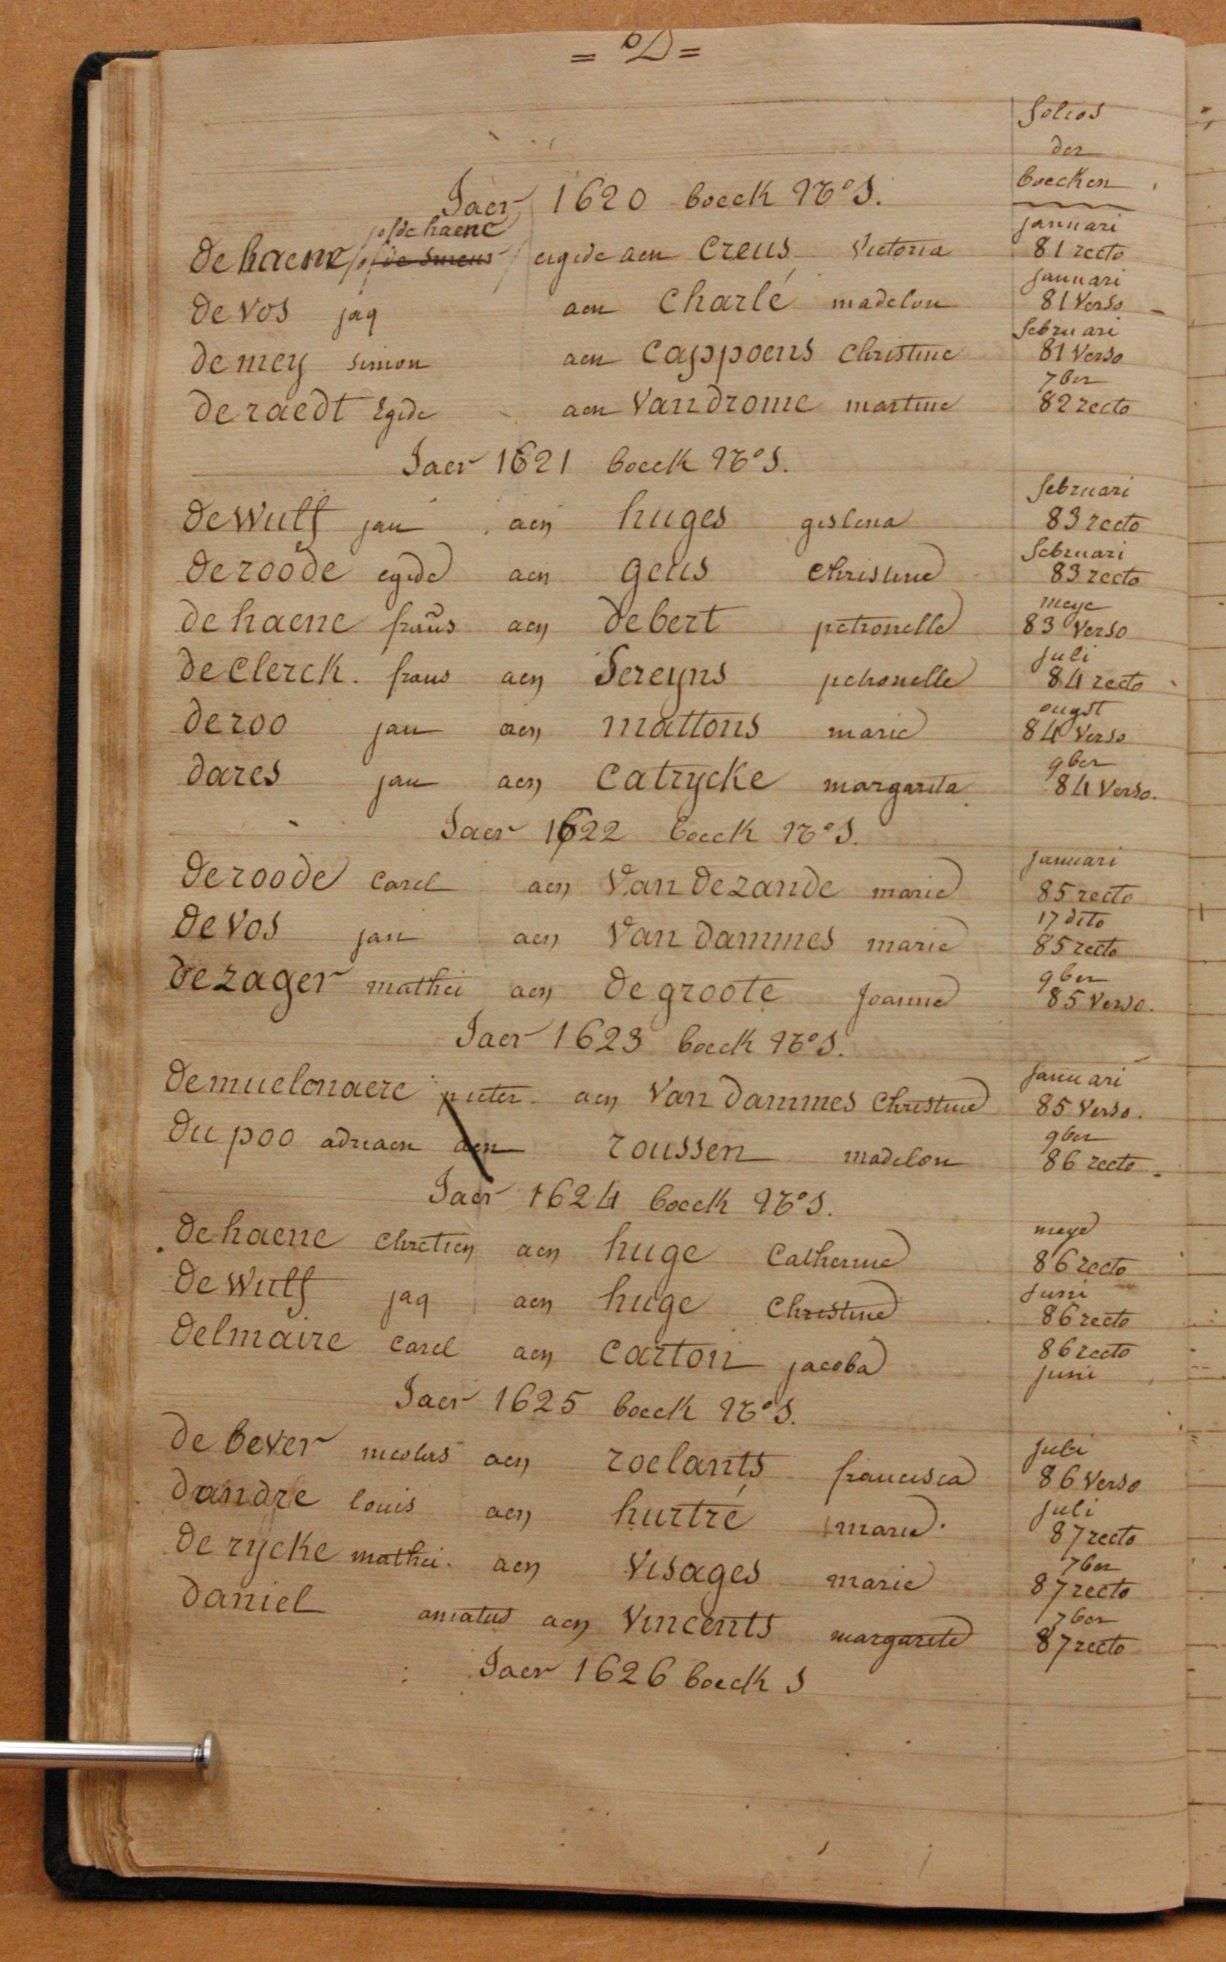 = D =
folios
der
boecken
Jaer 1620 boeck No 1.
of de haene
de haene / of de smeus / eigide aen Creus Victoria januari 81 recto
de vos jaq aen Charlé madelon januari 81 Verso
de mey simon aen Cappoens Christine februari 81 Verso
de raedt Egide aen Vandrome martine 7ber 82 recto
Jaer 1621 boeck No 1.
de Wulf jan aen huges gislena februari 83 recto
de roode egide aen geus Christine februari 83 recto
de haene frans aen de bert petronelle meye 83 Verso
de Clerck. frans aen Sereyns petronelle juli 84 recto
de roo jan aen mattons marie ougst 84 Verso
dares jan aen Catrycke margarita 9ber 84 Verso.
Jaer 1622 boeck No 1.
de roode Carel aen Van de zande marie januari 85 recto
de Vos jan aen Van dammes marie 17 dito 85 recto
de zager mathei aen de groote Joanne 9ber 85 Verso.
Jaer 1623 boeck No 1.
de muelonaere pieter aen Van dammes Christine januari 85 Verso.
du poo adriaen aen roussen madelon 9ber 86 recto
Jaer 1624 boeck No 1.
de haene Chretien aen huge Catherine meye 86 recto
de Wulf jaq aen huge Christine juni 86 recto
delmaire Carel aen Carton jacoba 86 recto juni
Jaer 1625 boeck No 1.
de bever nicolas aen roelants francisca juli 86 Verso
dandre louis aen hurtré marie. juli 87 recto
de rycke mathei. aen Visages marie 7ber 87 recto
daniel amatus aen Vincents margarite 7ber 87 recto
Jaer 1626 boeck 1